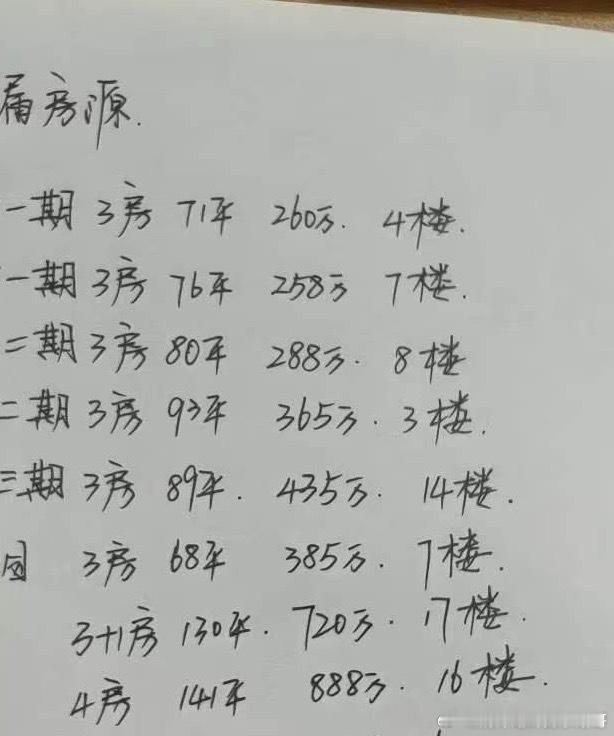 房源.
一期 3房 71平 260万. 4楼.
一期 3房 76平 258万 7楼.
二期 3房 80平 288万. 8楼
二期 3房 93平 365万. 3楼.
三期 3房 89平. 435万. 14楼.
3房 68平 385万. 7楼.
3+1房 130平. 720万. 17楼.
4房 141平 888万. 16楼.